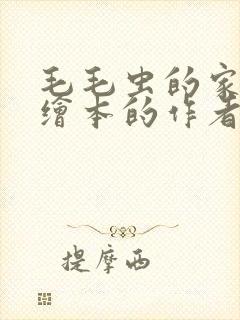 毛毛虫的家
繪本的作者
提摩西